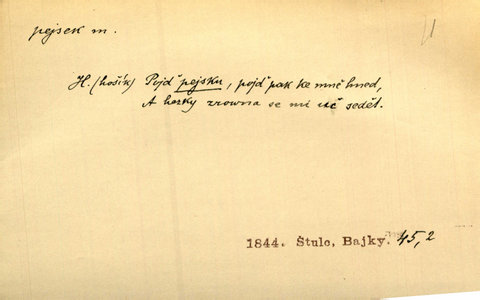 pejsek m.
H. (hošík) Pojď pejsku, pojď pak ke mně hned,
A hezky zrovna se mi uč seděť.
1844. Štulc, Bajky. 45, 2